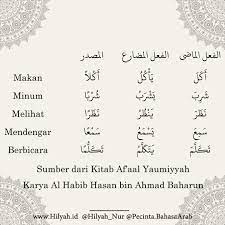 الفعل الماضى الفعل المضارع المصدر
Makan أَكَلَ يَأْكُلُ أَكْلًا
Minum شَرِبَ يَشْرَبُ شُرْبًا
Melihat نَظَرَ يَنْظُرُ نَظَرًا
Mendengar سَمِعَ يَسْمَعُ سَمْعًا
Berbicara تَكَلَّمَ يَتَكَلَّمُ تَكَلُّمًا
Sumber dari Kitab Af'aal Yaumiyyah
Karya Al Habib Hasan bin Ahmad Baharun
www.Hilyah.id @Hilyah_Nur @Pecinta.BahasaArab